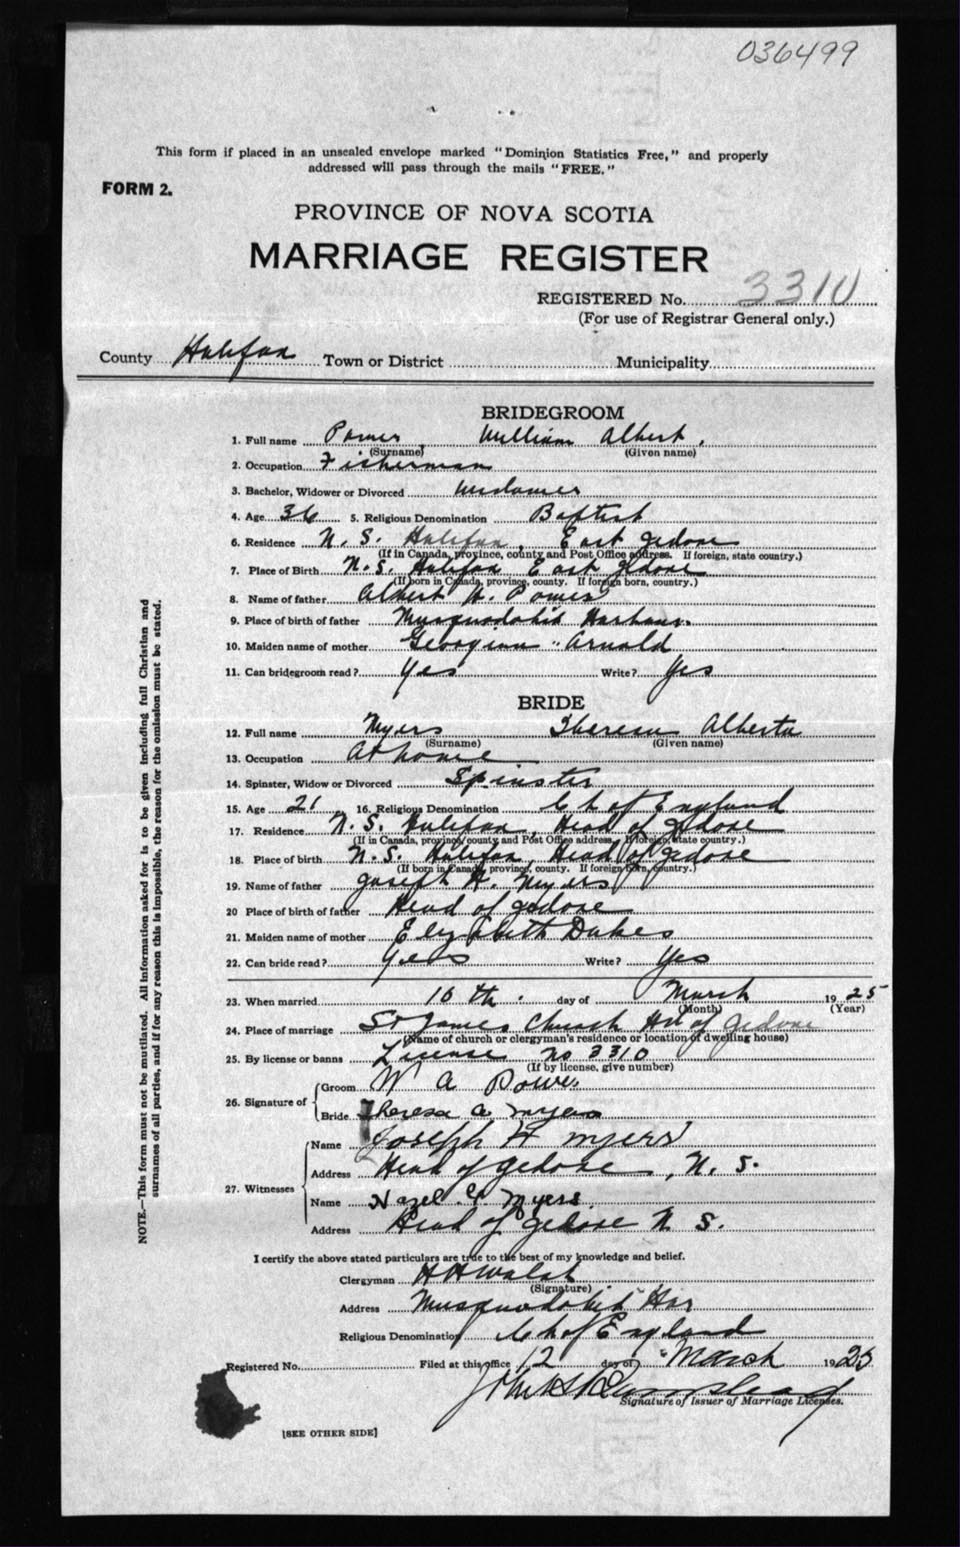 036499
This form if placed in an unsealed envelope marked "Dominion Statistics Free," and properly
addressed will pass through the mails "FREE."
FORM 2.
PROVINCE OF NOVA SCOTIA
MARRIAGE REGISTER
REGISTERED No. 3310
(For use of Registrar General only.)
County Halifax Town or District Municipality
BRIDEGROOM
1. Full name Power, William Albert,
(Surname) (Given name)
2. Occupation Fisherman
3. Bachelor, Widower or Divorced Widower
4. Age 36 5. Religious Denomination Baptist
6. Residence N. S. Halifax, East Jedore
(If in Canada, province, county and Post Office address. If foreign, state country.)
7. Place of Birth N. S. Halifax East Jedore
(If born in Canada, province, county. If foreign born, country.)
8. Name of father Albert H. Power
9. Place of birth of father Musquodobit Harbour.
10. Maiden name of mother Georgina Arnold
11. Can bridegroom read? Yes Write? Yes
BRIDE
12. Full name Myers Theresa Alberta
(Surname) (Given name)
13. Occupation At home
14. Spinster, Widow or Divorced Spinster
15. Age 21 16. Religious Denomination Ch of England
17. Residence N. S. Halifax, Head of Jedore
(If in Canada, province, county and Post Office address. If foreign, state country.)
18. Place of birth N. S. Halifax, Head of Jedore
(If born in Canada, province, county. If foreign born, country.)
19. Name of father Joseph H. Myers
20 Place of birth of father Head of Jedore
21. Maiden name of mother Elizabeth Dakes
22. Can bride read? Yes Write? Yes
23. When married 10th. day of March 1925
(Month) (Year)
24. Place of marriage St James Church Hd of Jedore
(Name of church or clergyman's residence or location of dwelling house)
25. By license or banns License no 3310
(If by license, give number)
26. Signature of Groom W A Power
Bride Theresa A Myers
27. Witnesses Name Joseph H Myers
Address Head of Jedore, N. S.
Name Hazel Myers
Address Head of Jedore N S.
I certify the above stated particulars are true to the best of my knowledge and belief.
Clergyman H H Walsh
(Signature)
Address Musquodobit Har
Religious Denomination Ch of England
Registered No. Filed at this office 12 day of March 1925
Signature of Issuer of Marriage Licenses.
[SEE OTHER SIDE]
NOTE.—This form must not be mutilated. All information asked for is to be given including full Christian and
surnames of all parties, and if for any reason this is impossible, the reason for the omission must be stated.